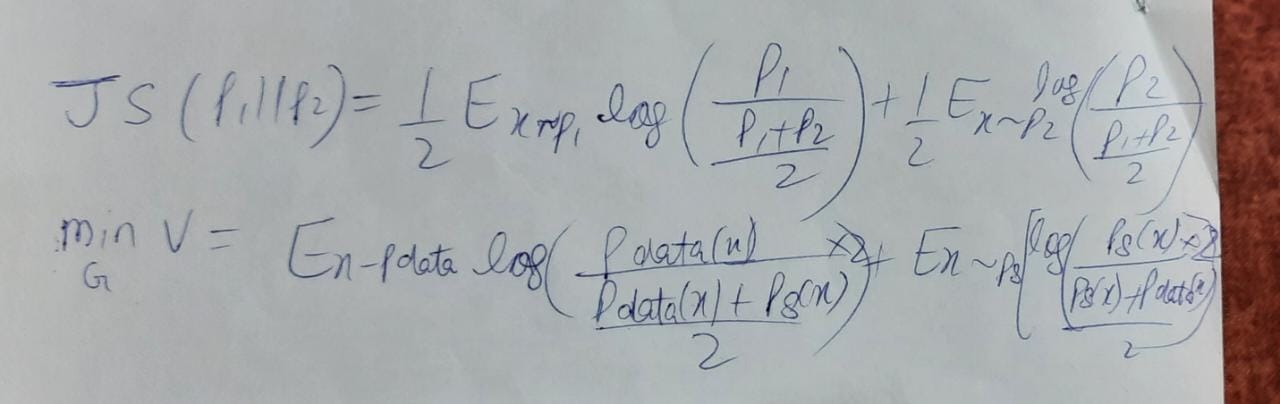 JS(P₁||P₂) = 1/2 E x~p₁ log(P₁/((P₁+P₂)/2)) + 1/2 E x~P₂ log(P₂/((P₁+P₂)/2))
min G V = E x~Pdata log(Pdata(x)/((Pdata(x)+Pg(x))/2)) + E x~Pg [log(Pg(x)/((Pg(x)+Pdata(x))/2))